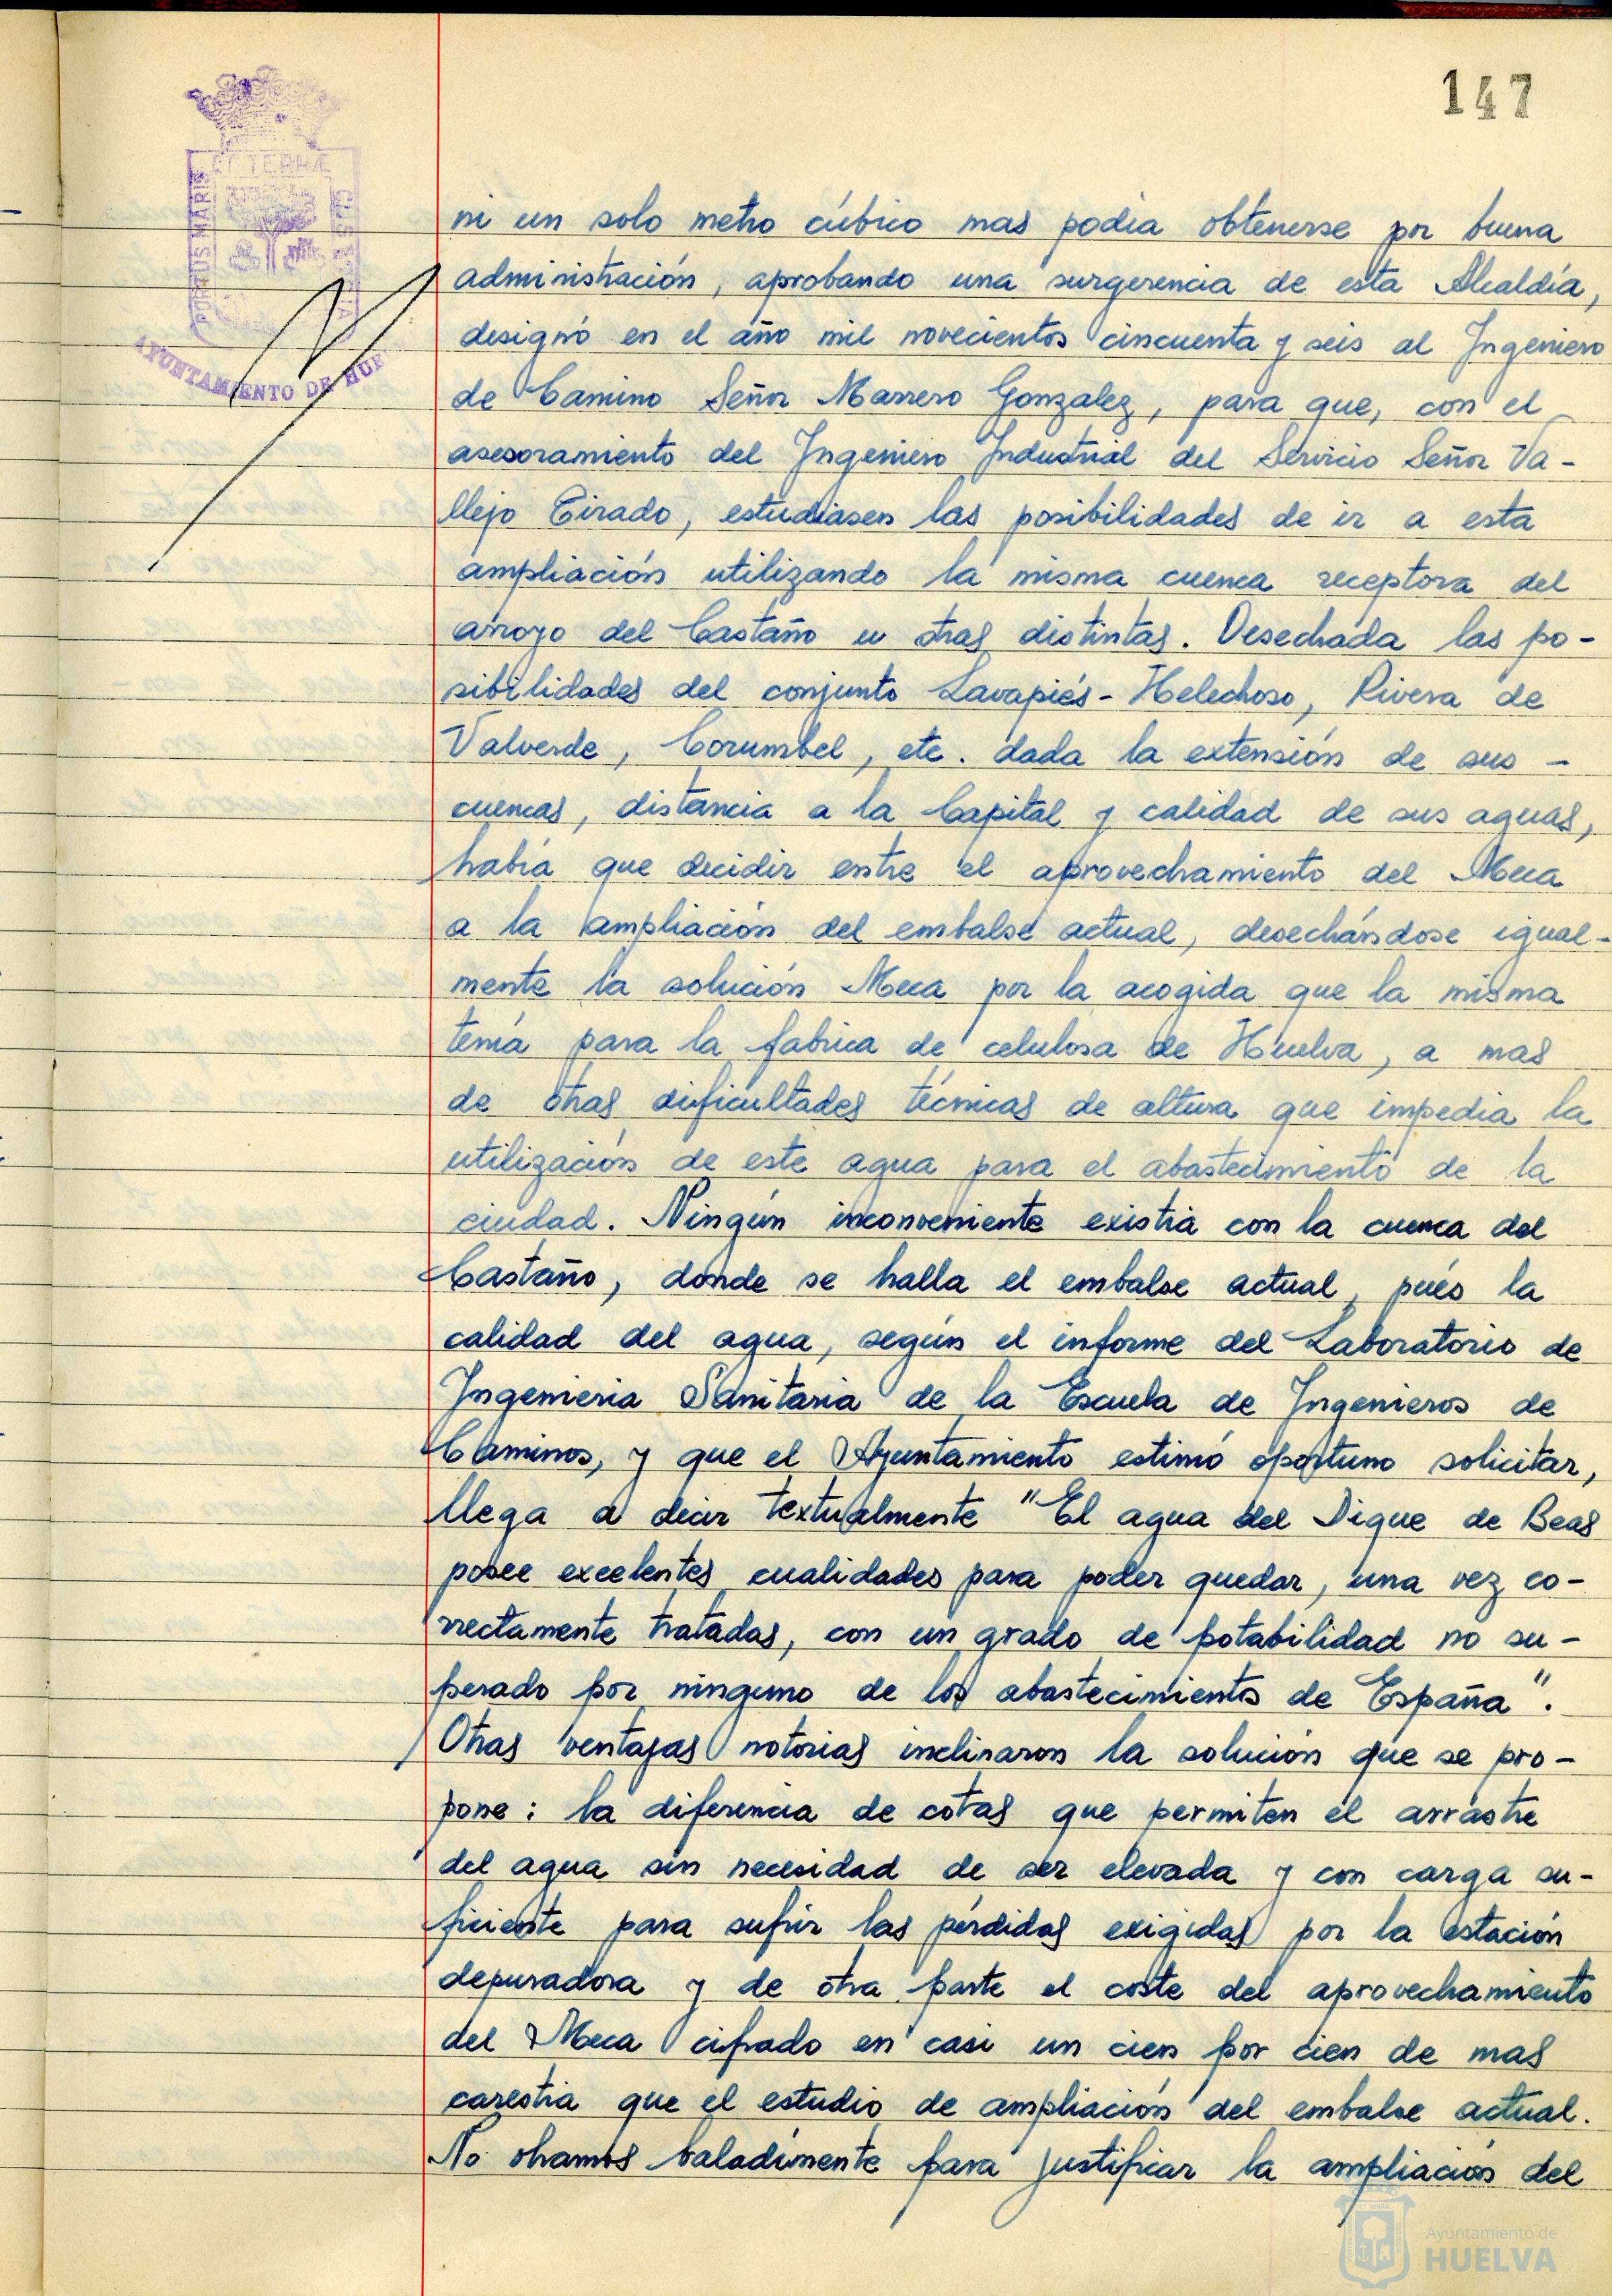 147
ET TERRÆ
PORTUS MARIS
CUSTODIA
AYUNTAMIENTO DE HUE
ni un solo metro cúbico mas podia obtenerse por buena
administración, aprobando una surgerencia de esta Alcaldía,
designó en el año mil novecientos cincuenta y seis al Ingeniero
de Camino Señor Marrero Gonzalez, para que, con el
asesoramiento del Ingeniero Industrial del Servicio Señor Va-
llejo Tirado, estudiasen las posibilidades de ir a esta
ampliación utilizando la misma cuenca receptora del
arroyo del Castaño u otras distintas. Desechada las po-
sibilidades del conjunto Lavapiés-Helechoso, Rivera de
Valverde, Corumbel, etc. dada la extensión de sus -
cuencas, distancia a la Capital y calidad de sus aguas,
había que decidir entre el aprovechamiento del Meca
a la ampliación del embalse actual, desechándose igual-
mente la solución Meca por la acogida que la misma
tenía para la fabrica de celulosa de Huelva, a mas
de otras dificultades técnicas de altura que impedia la
utilización de este agua para el abastecimiento de la
ciudad. Ningún inconveniente existía con la cuenca del
Castaño, donde se halla el embalse actual, pués la
calidad del agua, según el informe del Laboratorio de
Ingenieria Sanitaria de la Escuela de Ingenieros de
Caminos, y que el Ayuntamiento estimó oportuno solicitar,
llega a decir textualmente "El agua del Dique de Beas
posee excelentes cualidades para poder quedar, una vez co-
rrectamente tratadas, con un grado de potabilidad no su-
perado por ninguno de los abastecimientos de España".
Otras ventajas notorias inclinaron la solución que se pro-
pone: la diferencia de cotas que permiten el arrastre
del agua sin necesidad de ser elevada y con carga su-
ficiente para sufrir las pérdidas exigidas por la estación
depuradora y de otra parte el coste del aprovechamiento
del Meca cifrado en casi un cien por cien de mas
carestia que el estudio de ampliación del embalse actual.
No obramos baladimente para justificar la ampliación del
Ayuntamiento de
HUELVA